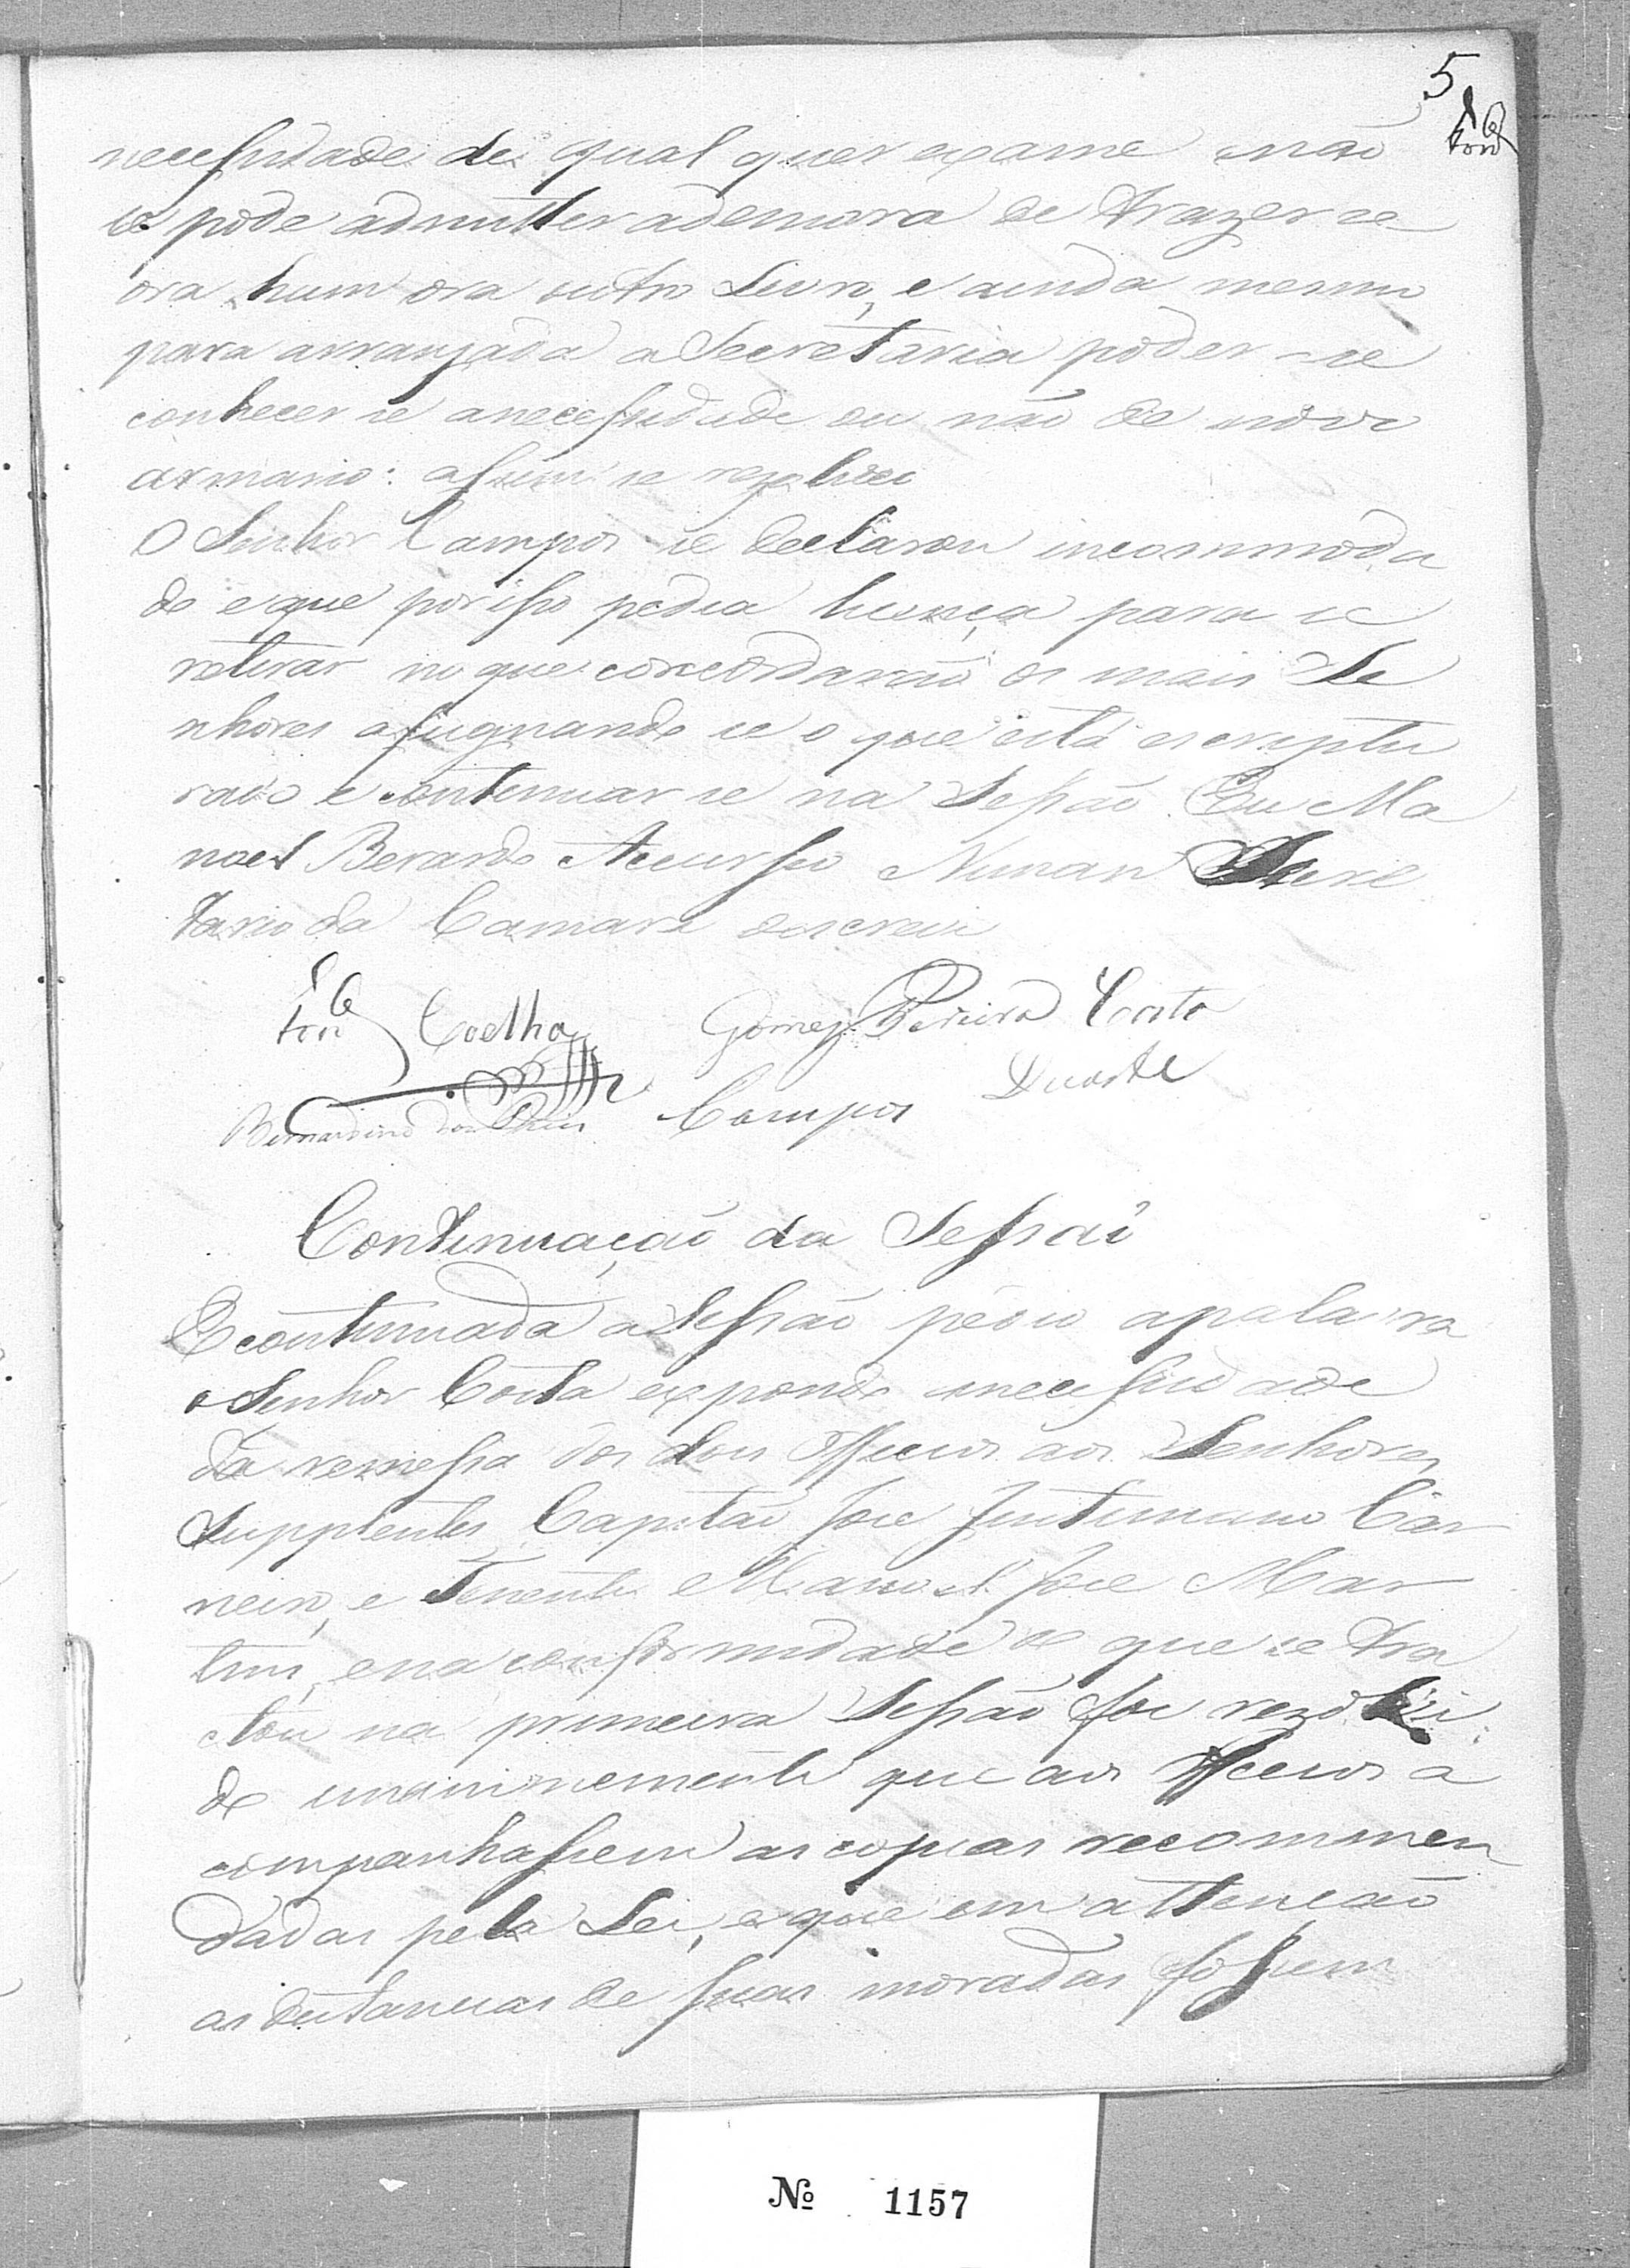 5
necessidade de qual quer exame não
se pode admitter ademora de trazer se
ora hum ora outro Livro, e ainda mesmo
para arranjada a Secretaria poder-se
conhecer se anecessidade ou não de novo
armario: assim se rezolveo
O Senhor Campos se declarou incommoda
do e que porisso pedia licença para se
retirar no que concordarão os mais Se
nhores assignando se o que está escriptu
rado e continuar se na Sessão. Eu Ma
noel Berardo Accursio Nunan Secre
tario da Camara oescrevi
Coelho Gomes Pereira Costa
Duarte
Bernardino dos Reis Campos
Continuação da Sessão
E continuada a Sessão pedio apalavra
o Senhor Costa expondo anecessidade
da remessa dos dous Officios aos Senhores
Supplentes Capitão Jose Justiniano Car
neiro, e Tenente Manoel Jose Mar
tins, ena conformidade do que se tra
ctou na primeira Sessão foi rezolvi
do unanimemente que aos Officios a
companhassem as copias recommen
dadas pela Lei, e que em attenção
as distancias de suas moradas fossem
Nº 1157